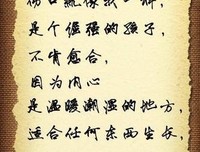 伤口就像我一样,
是个倔强的孩子,
不肯愈合,
因为内心
是温暖潮湿的地方,
适合任何东西生长,